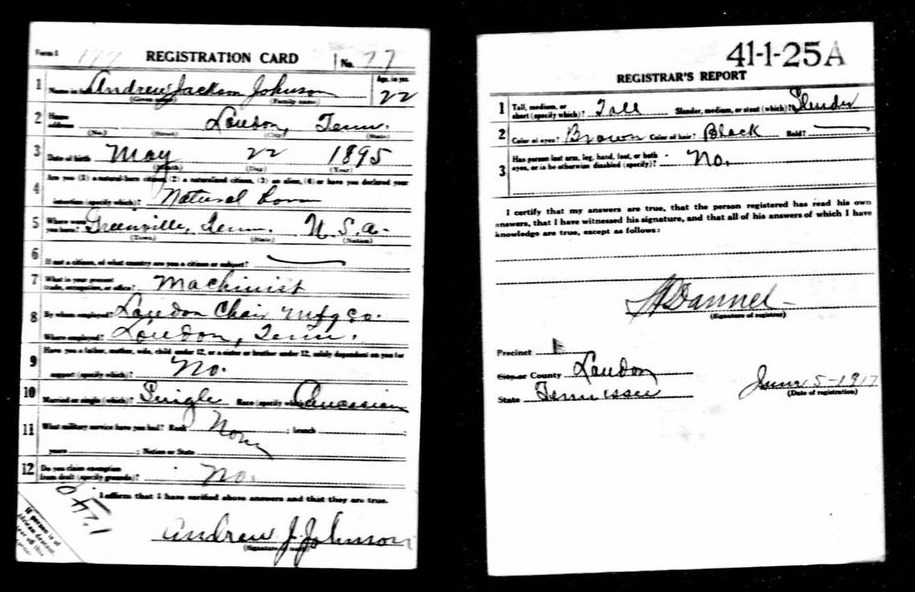 Form 1
REGISTRATION CARD
No. 77
1 Name in full Andrew Jackson Johnson
(Given name) (Family name)
Age, in yrs.
22
2 Home address Loudon, Tenn.
(No.) (Street) (City) (State)
3 Date of birth May 22 1895
(Month) (Day) (Year)
4 Are you (1) a natural-born citizen, (2) a naturalized citizen, (3) an alien, (4) or have you declared your
intention (specify which)? Natural born
5 Where were you born? Greenville, Tenn. U.S.A.
(Town) (State) (Nation)
6 If not a citizen, of what country are you a citizen or subject?
7 What is your present trade, occupation, or office? Machinist
8 By whom employed? Loudon Chair Mfg Co.
Where employed? Loudon, Tenn.
9 Have you a father, mother, wife, child under 12, or a sister or brother under 12, solely dependent on you for
support (specify which)? No.
10 Married or single (which)? Single Race (specify which)? Caucasian
11 What military service have you had? Rank None ; branch ;
years ; Nation or State
12 Do you claim exemption from draft (specify grounds)? No.
I affirm that I have verified above answers and that they are true.
Andrew J. Johnson
If person is of
41-1-25A
REGISTRAR'S REPORT
1 Tall, medium, or short (specify which)? Tall Slender, medium, or stout (which)? Slender
2 Color of eyes? Brown Color of hair? Black Bald?
3 Has person lost arm, leg, hand, foot, or both eyes, or is he otherwise disabled (specify)? No.
I certify that my answers are true, that the person registered has read his own
answers, that I have witnessed his signature, and that all of his answers of which I have
knowledge are true, except as follows:
Dannel
(Signature of registrar)
Precinct 1
City or County Loudon
State Tennessee
June 5-1917
(Date of registration)